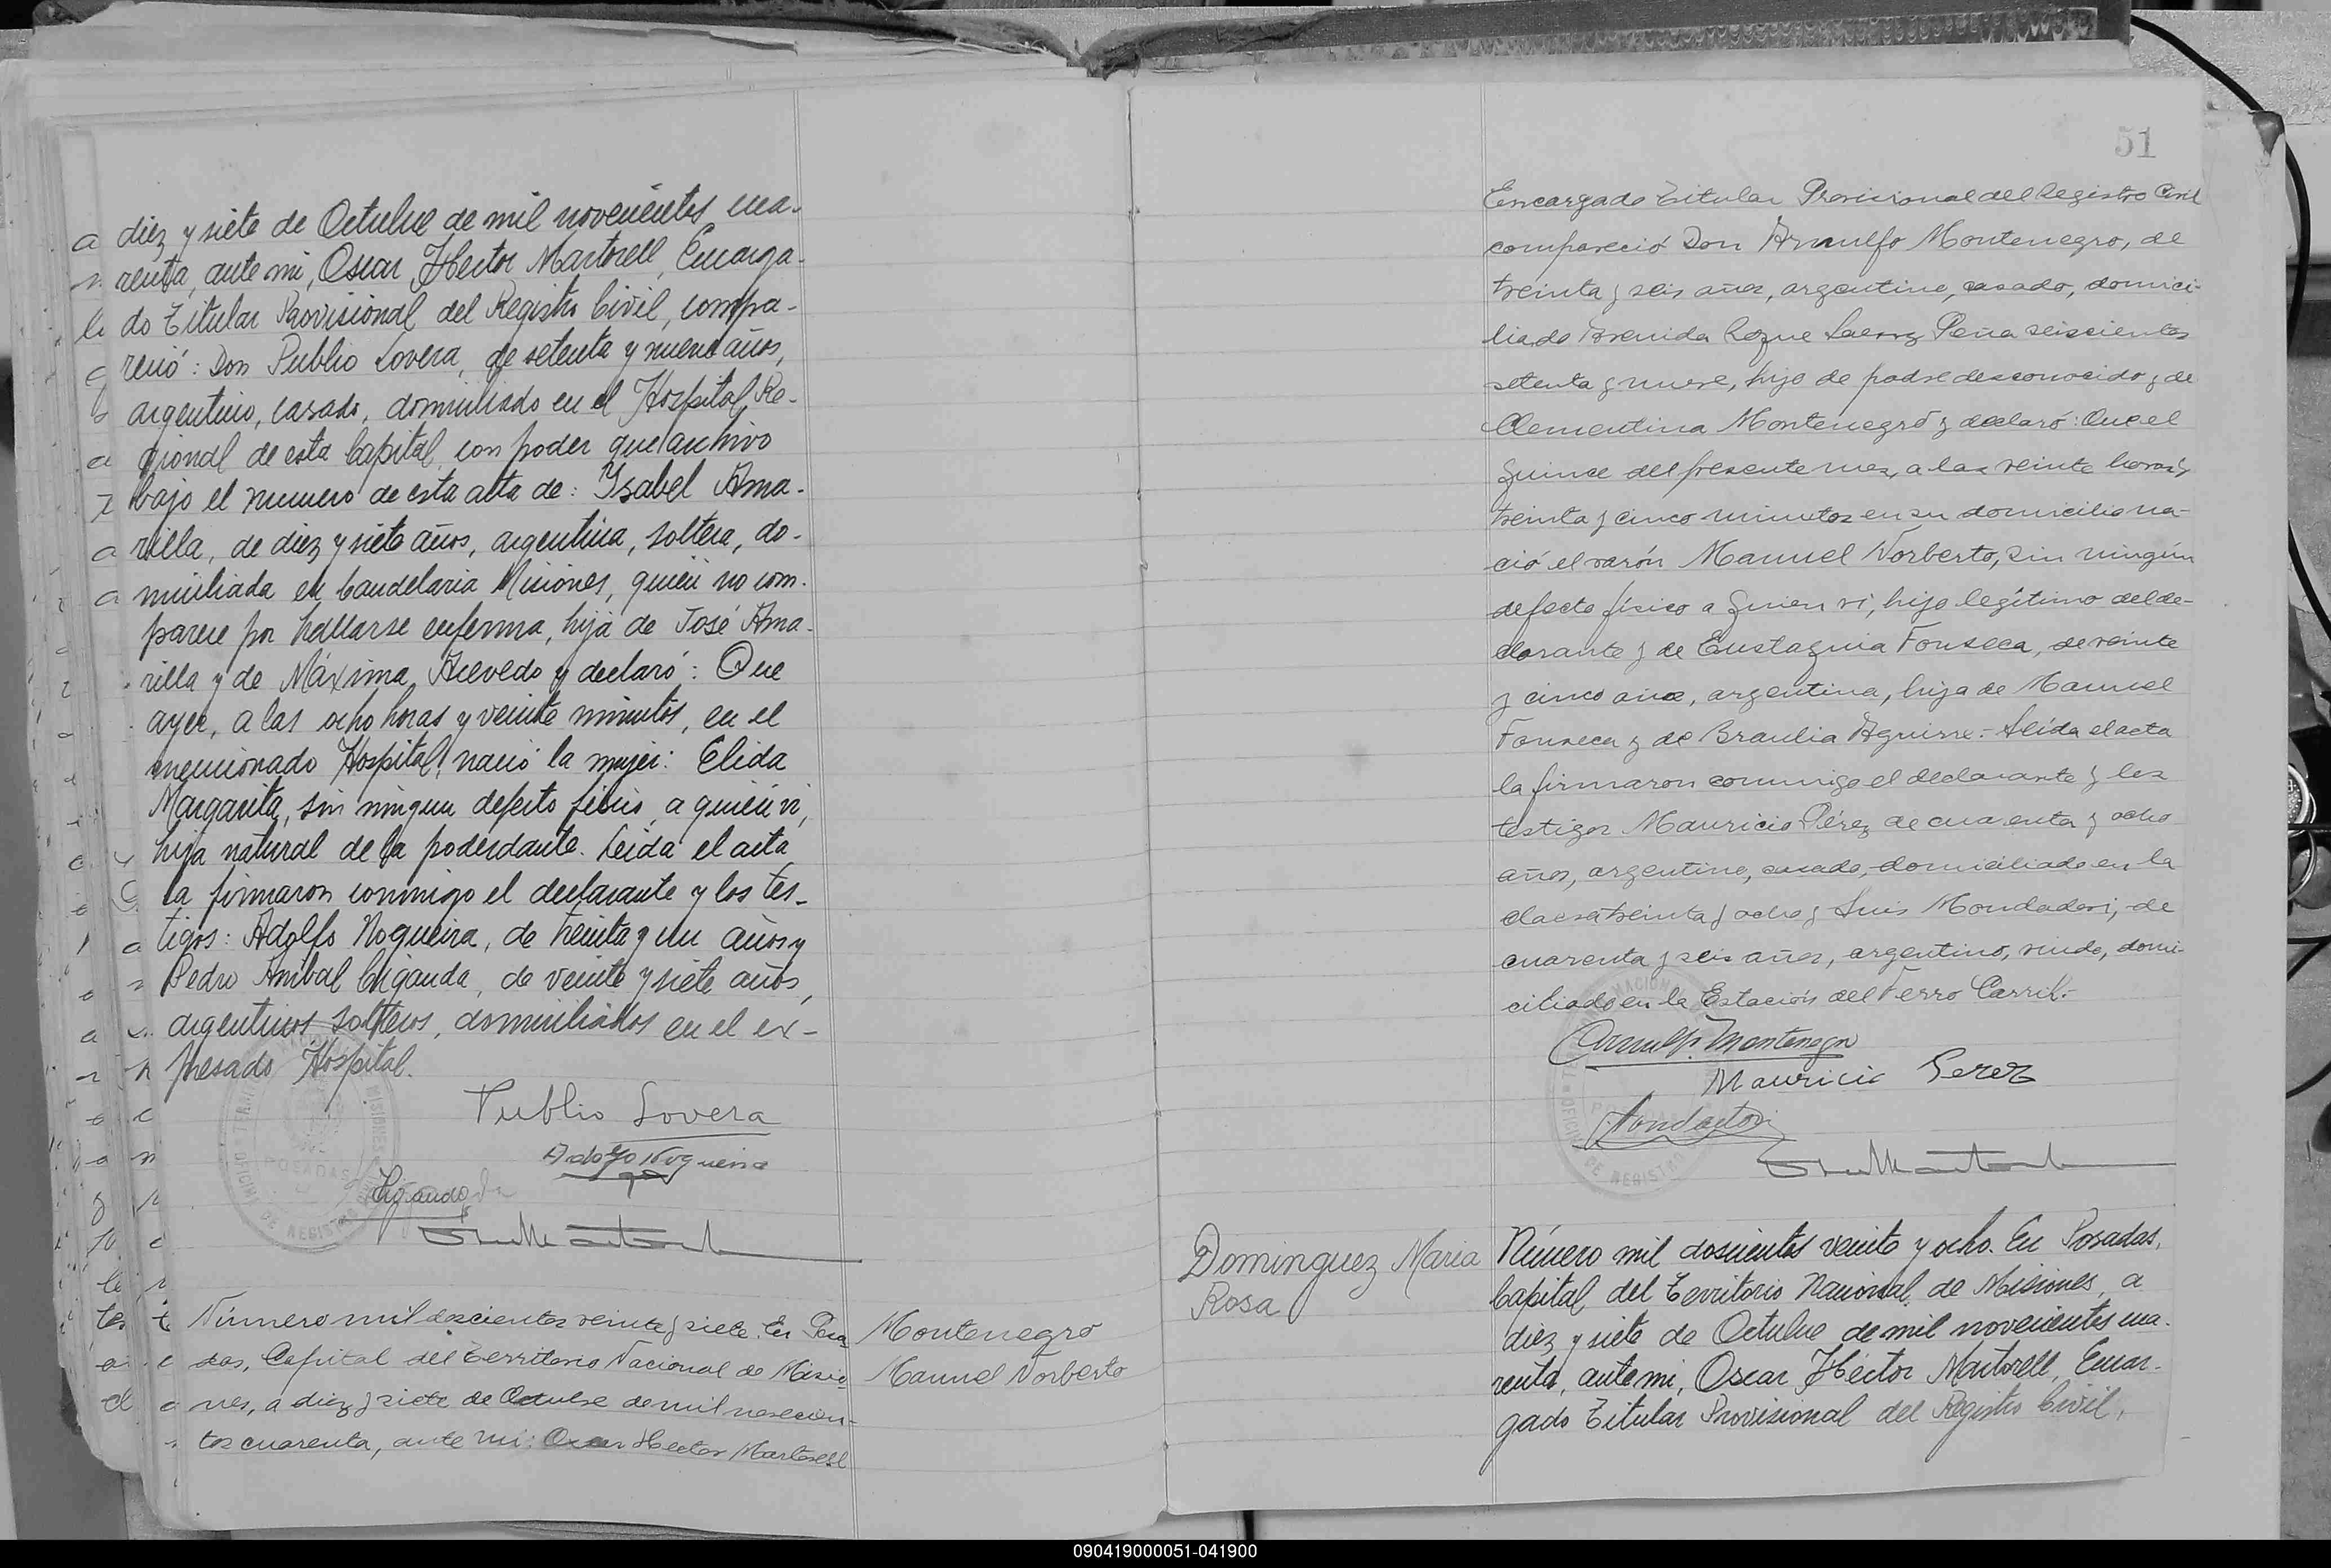 diez y siete de Octubre de mil novecientos cua-
renta, ante mi, Oscar Hector Martorell, Encarga-
do Titular Provisional del Registro Civil, compa-
reció: Don Publio Lovera, de setenta y nueve años,
argentino, casado, domiciliado en el Hospital Re-
gional de esta Capital, con poder que archivo
bajo el numero de esta acta de: Ysabel Ama-
rilla, de diez y siete años, argentina, soltera, do-
miciliada en Candelaria Misiones, quien no com-
parece por hallarse enferma, hija de José Ama-
rilla y de Máxima Acevedo y declaró: Que
ayer, a las ocho horas y veinte minutos, en el
mencionado Hospital, nació la mujer: Elida
Margarita, sin ningun defecto fisico, a quien vi,
hija natural de la poderdante. Leida el acta
la firmaron conmigo el declarante y los tes-
tigos: Adolfo Nogueira, de treinta y un años y
Pedro Anibal Ciganda, de veinte y siete años,
argentinos, solteros, domiciliados en el ex-
presado Hospital.
Publio Lovera
Adolfo Nogueira
Ciganda
Número mil doscientos veinte y siete. En Posa-
das, Capital del Territorio Nacional de Misio-
nes, a diez y siete de Octubre de mil novecien-
tos cuarenta, ante mi: Oscar Hector Martorell
Montenegro
Manuel Norberto
51
Encargado Titular Provisional del Registro Civil
compareció Don Arnulfo Montenegro, de
treinta y seis años, argentino, casado, domici-
liado Avenida Roque Saenz Peña seiscientos
setenta y nueve, hijo de padre desconocido y de
Clementina Montenegro y declaró: Que el
quince del presente mes, a las veinte horas y
treinta y cinco minutos en su domicilio na-
ció el varón Manuel Norberto, sin ningún
defecto físico a quien vi, hijo legítimo del de-
clarante y de Eustaquia Fonseca, de veinte
y cinco años, argentina, hija de Manuel
Fonseca y de Braulia Aguirre.- Leída el acta
la firmaron conmigo el declarante y los
testigos Mauricio Pérez de cuarenta y ocho
años, argentino, casado, domiciliado en la
chacra treinta y ocho y Luis Mondadori, de
cuarenta y seis años, argentino, viudo, domi-
ciliado en la Estación del Ferro Carril.-
Arnulfo Montenegro
Mauricio Perez
Mondadori
Dominguez Maria
Rosa
Número mil doscientos veinte y ocho. En Posadas,
Capital del Territorio Nacional de Misiones, a
diez y siete de Octubre de mil novecientos cua-
renta, ante mi, Oscar Héctor Martorell, Encar-
gado Titular Provisional del Registro Civil,
090419000051-041900